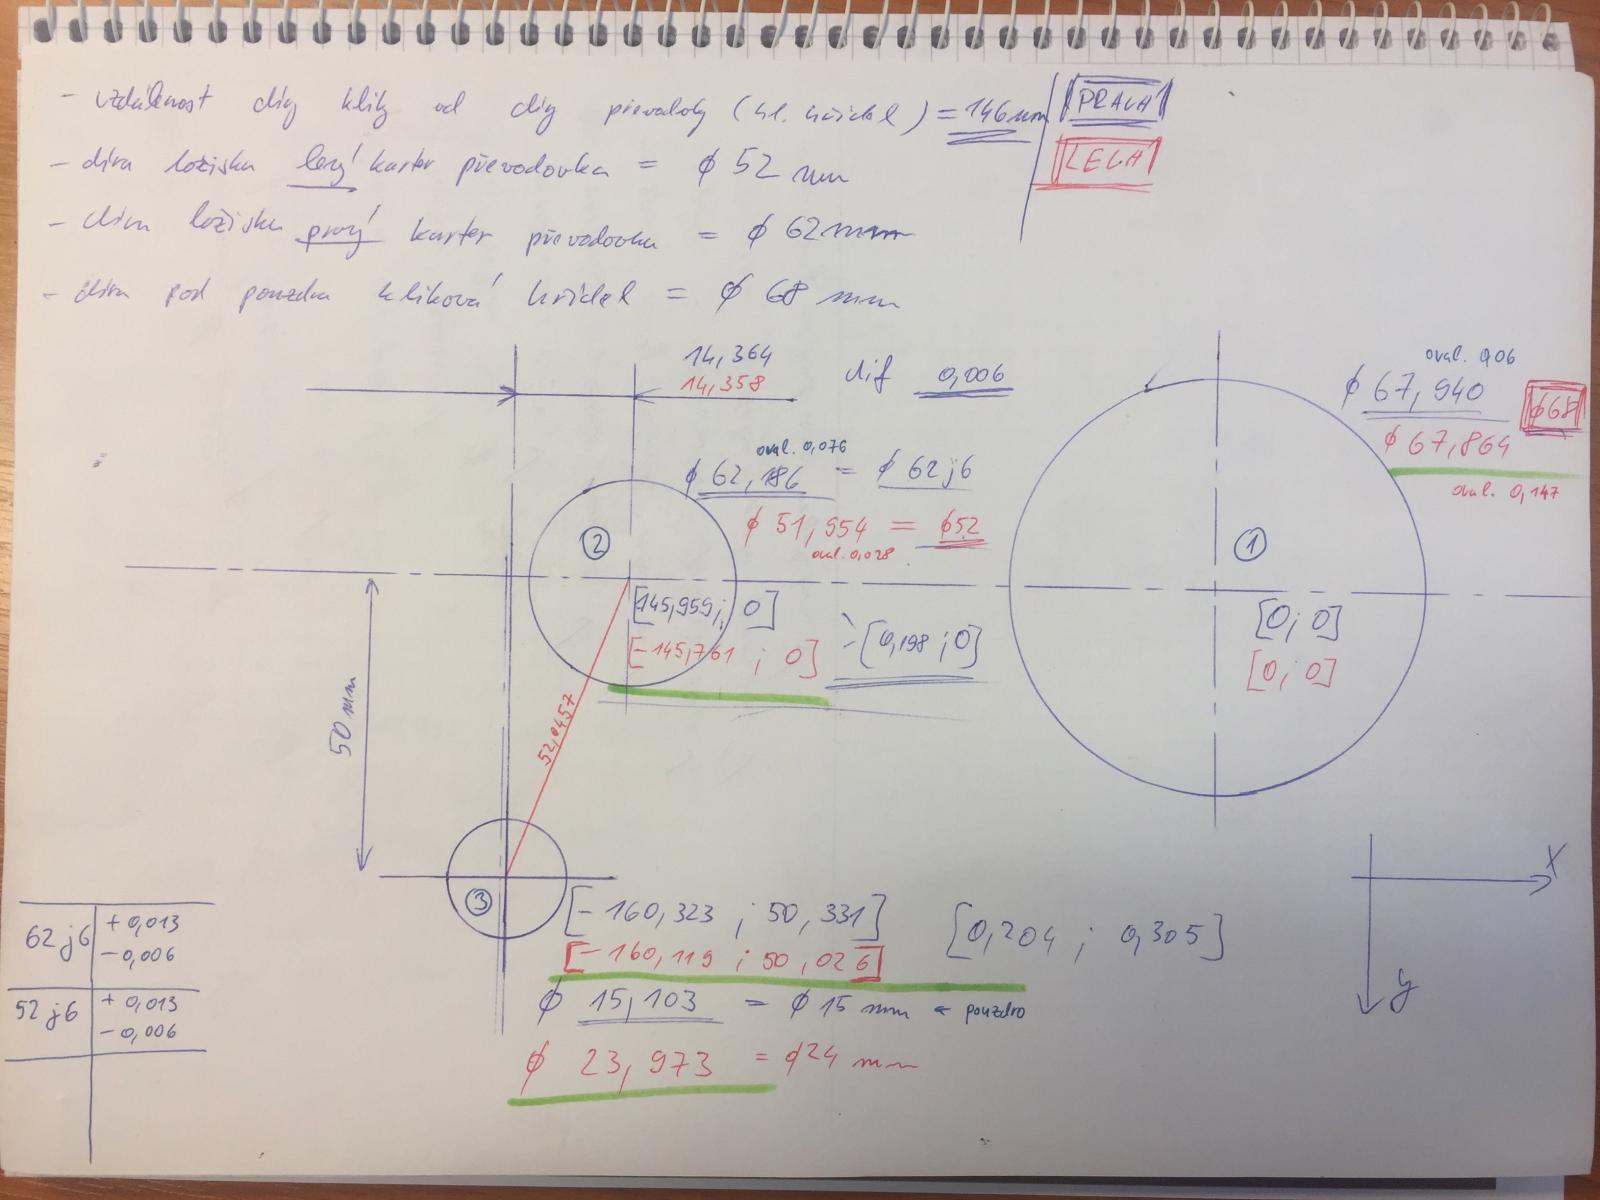 - vzdálenost díry klik od díry převodovky (hl. hřídel) = 146 mm
PRAVÁ
LEVÁ
- díra ložiska levý karter převodovka = ϕ 52 mm
- díra ložiska pravý karter převodovka = ϕ 62 mm
- díra pod pouzdra kliková hřídel = ϕ 68 mm
14,364
14,358
dif 0,006
oval. 0,06
ϕ 67,940
ϕ68
ϕ 67,864
oval. 0,147
oval. 0,076
ϕ 62,186 = ϕ 62 j6
ϕ 51,954 = ϕ52
oval. 0,028
2
1
[145,959; 0]
[-145,761 ; 0]
[0,198 ; 0]
[0; 0]
[0; 0]
50 mm
52,0457
3
[-160,323 ; 50,331] [0,204 ; 0,305]
[-160,119 ; 50,026]
ϕ 15,103 = ϕ 15 mm ← pouzdro
ϕ 23,973 = ϕ24 mm
x
y
62 j6 +0,013
-0,006
52 j6 +0,013
-0,006